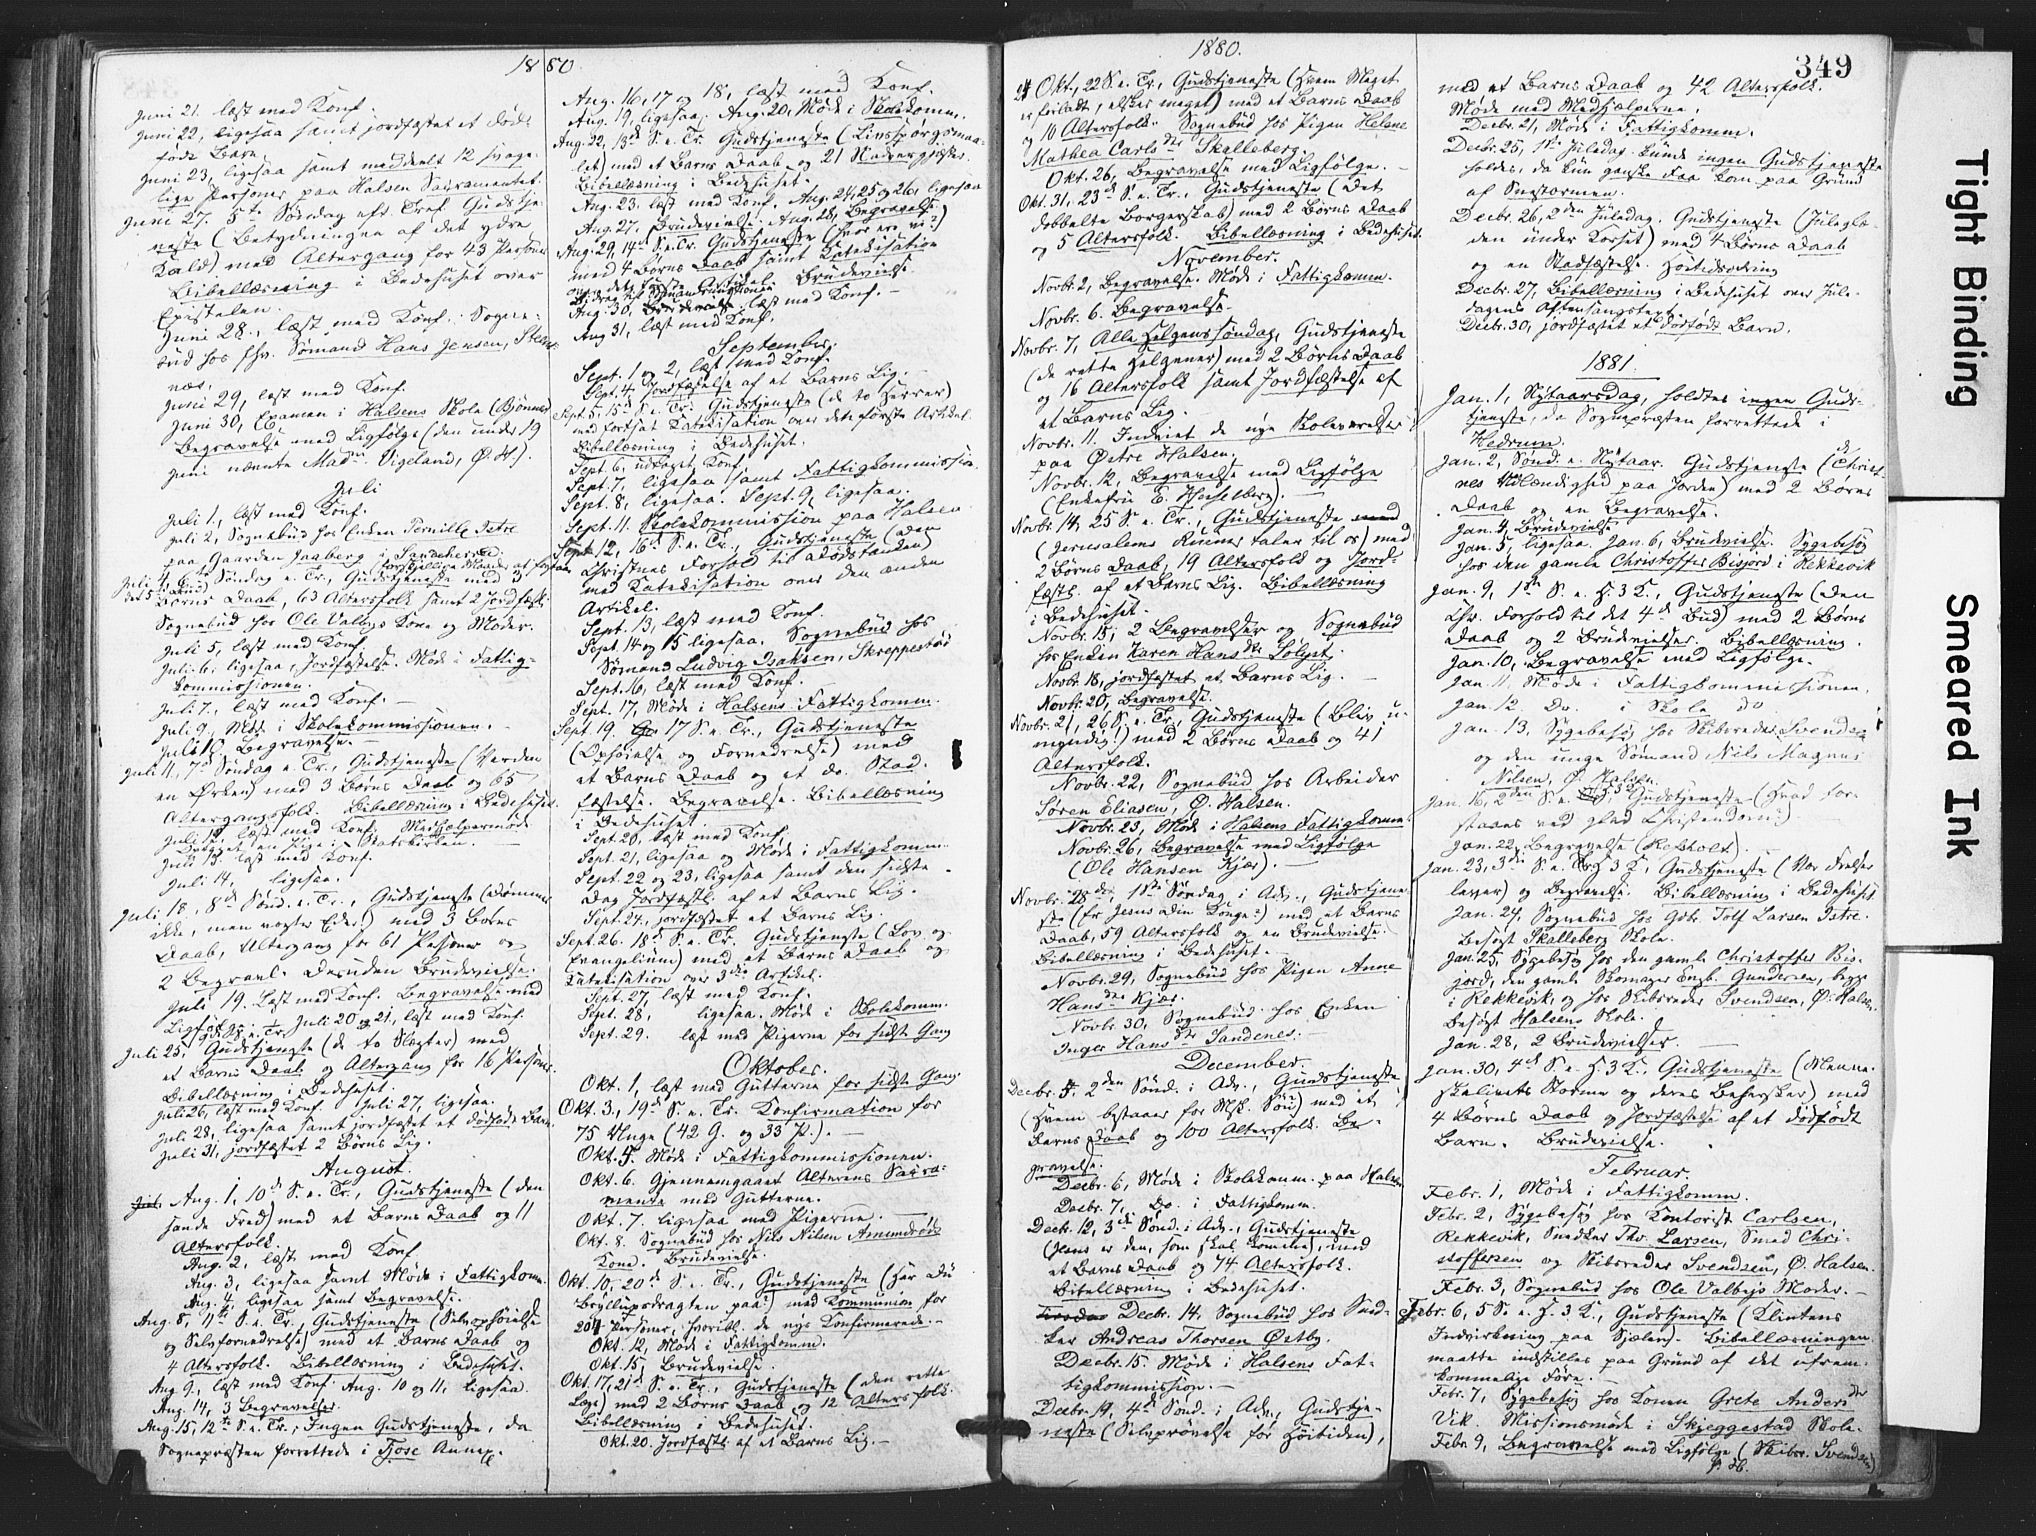 1880.
Juni 21. læst med Konf.
Juni 22, ligesaa samt jordfæstet et død-
født Barn.
Juni 23, ligesaa samt meddeelt 12 svage-
lige Personer paa Halsen Sacramentet.
Juni 27. 5te Søndag eft. Tref. Gudstje-
neste (Betydningen af det ydre
Kald) med Altergang for 43 Personer
Bibellæsning i Bedehuset over
Epistelen.
Juni 28., læst med Konf. Sogne-
bud hos fhv. Sømand Hans Jensen,
næs.
Juni 29, læst med Konf.
Juni 30, Examen i Halsens Skole (Bjønnes)
Begravelse med Ligfølge (den under 19
Juni nævnte Mad. Vigeland, Ø. H.).
Juli
Juli 1., læst med Konf.
Juli 2, Sognebud hos Enken Pernille Istre
paa Gaarden Jaaberg i Sandeherred.
Juli 4, 6te Søndag e. Tr., Gudstjeneste med 3
Børns Daab, 63 Altersfolk samt 2 Jordfæst.
Sognebud hos Ole Valbys Kone og Moder.
Juli 5, læst med Konf.
Juli 6. ligesaa, Jordfæstelse. Møde i Fattig-
kommissionen.
Juli 7, læst med Konf.
Juli 9, Møde i Skolekommissionen.
Juli 10. Begravelse.
Juli 11, 7de Søndag e. Tr., Gudstjeneste (Verden
en Ørken) med 3 Børns Daab og 65
Altergangsfolk. Bibellæsning i Bedehuset.
Juli 12, læst med Konf. Medhjælpermøde
Juli 13. læst med Konf.
Juli 14, ligesaa.
Juli 18, 8de Sønd. e. Tr., Gudstjeneste (Dømmer
ikke, men vogter Eder!) med 3 Børns
Daab, Altergang for 61 Personer og
2 Begravel. Desuden Brudevielse.
Juli 19. Læst med Konf. Begravelse med
Ligfølge. Juli 20 og 21, læst med Konf.
Juli 25, 9de S. e. Tr. Gudstjeneste (de to Slægter) med
et Barns Daab og Altergang for 16 Personer.
Bibellæsning i Bedehuset.
Juli 26, læst med Konf. Juli 27, ligesaa.
Juli 28, ligesaa samt jordfæstet et dødfødt Barn.
Juli 31, jordfæstet 2 Børns Lig.
August.
Aug. 1, 10de S. e. Tr., Gudstjeneste (den
sande Fred) med et Barns Daab og 11
Altersfolk.
Aug. 2, læst med Konf.
Aug. 3, ligesaa samt Møde i Fattigkomm.
Aug. 4, ligesaa samt Begravelse.
Aug. 8, 11te S. e. Tr., Gudstjeneste (Selvophøielse
og Selvfornedrelse) med et Barns Daab og
4 Altersfolk. Bibellæsning i Bedehuset.
Aug. 9, læst med Konf. Aug. 10 og 11, ligesaa.
Aug. 14, 3 Begravelser.
Aug. 15, 12te S. e. Tr., Ingen Gudstjeneste, da
Sognepræsten forrettede i Tjøse Annex.
Aug. 16, 17 og 18, læst med Konf.
Aug. 19, ligesaa; Aug. 20, Møde i Skolekomm.
Aug. 22, 13de S. e. Tr. Gudstjeneste (Livsspørgsmaa-
let) med et Barns Daab og 21 Nadvergjæster.
Bibellæsning i Bedehuset.
Aug. 23. læst med Konf. Aug. 24, 25 og 26, ligesaa
Aug. 27. Brudevielse. Aug. 28, Begravelse
Aug. 29, 14de S. e. Tr. Gudstjeneste (Hvor ere vi?)
med 4 Børns Daab samt Katekisation
over det første Artikel. Brudevielse
Aug. 30, Brudevielse, læst med Konf.
Aug 31, læst med Konf.
September.
Sept. 1 og 2, læst med Konf.
Sept. 4, Jordfæstelse af et Barns Lig.
Sept. 5, 15de S. e. Tr. Gudstjeneste (de to Herrer)
med fortsat Katekisation over det første Artikel.
Bibellæsning i Bedehuset.
Sept. 6, udtaget Konf.
Sept. 7, ligesaa samt Fattigkommission.
Sept. 8, ligesaa. Sept. 9, ligesaa.
Sept. 11. Skolekommission paa Halsen.
Sept. 12, 16de S. e. Tr., Gudstjeneste (den
Christnes Forhold til Modstanden)
med Katekisation over den anden
Artikel.
Sept. 13, læst med Konf.
Sept. 14 og 15 ligesaa. Sognebud hos
Sømand Ludvig Isaksen, Skreppestad
Sept. 16, læst med Konf.
Sept. 17, Møde i Halsens Fattigkomm.
Sept. 19. 17 S. e. Tr., Gudstjeneste
(Ophøielse og Fornedrelse) med
et Barns Daab og et do. Stad-
fæstelse. Begravelse. Bibellæsning
i Bedehuset.
Sept. 20, læst med Konf.
Sept. 21, ligesaa og Møde i Fattigkomm.
Sept. 22 og 23, ligesaa samt den sidste
Dag Jordfæst. af et Barns Lig.
Sept. 24, jordfæstet et Barns Lig.
Sept. 26. 18de S. e. Tr. Gudstjeneste (Lov og
Evangelium) med et Barns Daab og
Katekisation over 3die Artikel.
Sept. 27, læst med Konf.
Sept. 28, ligesaa. Møde i Skolekomm.
Sept. 29. læst med Pigerne for sidste Gang
Oktober.
Okt. 1, læst med Gutterne for sidste Gang.
Okt. 3., 19de S. e. Tr. Konfirmation for
75 Unge (42 G. og 33 P.).
Okt. 5. Møde i Fattigkommissionen.
Okt. 6. Gjennemgaaet Alterens Sacra-
mente med Gutterne.
Okt. 7. ligesaa med Pigerne.
Okt. 8. Sognebud hos Nils Nilsen Amundrøds
Kone. Brudevielse.
Okt. 10, 20de S. e. Tr., Gudstjeneste (Har du
Bryllupsdragten paa?) med Kommunion for
204 Personer, hvoribl. de nys Konfirmerede.
Okt. 12, Møde i Fattigkomm.
Okt. 15, Brudevielse.
Okt. 17, 21de S. e. Tr., Gudstjeneste (den rette
Læge) med 2 Børns Daab og 12 Altersfolk.
Bibellæsning i Bedehuset.
Okt. 20. Jordfæst. af et Barns Lig.
1880.
349
24 Okt., 22 S. e. Tr., Gudstjeneste (Hvem Meget
er forladt, elsker meget) med et Barns Daab
og 10 Altersfolk. Sognebud hos Pigen Helene
Mathea Carlsdtr Skalleberg.
Okt. 26, Begravelse med Ligfølge.
Okt. 31. 23de S. e. Tr., Gudstjeneste (Det
dobbelte Borgerskab) med 2 Børns Daab
og 5 Altersfolk. Bibellæsning i Bedehuset.
November.
Novbr. 2, Begravelse. Møde i Fattigkomm.
Novbr. 6. Begravelse.
Novbr. 7, Alle Helgenssøndag, Gudstjeneste
(de rette Helgener) med 2 Børns Daab
og 16 Altersfolk samt Jordfæstelse af
et Barns Lig.
Novbr. 11. Indviet de nye Skoleværelser
paa Østre Halsen.
Novbr. 12, Begravelse med Ligfølge
(Enkefru E. Hesselberg).
Novbr. 14, 25 S. e. Tr., Gudstjeneste
(Jerusalems Ruiner taler til os) med
2 Børns Daab, 19 Altersfolk og Jord-
fæst. af et Barns Lig. Bibellæsning
i Bedehuset.
Novbr. 15, 2 Begravelser og Sognebud
hos Enken Karen Hansdtr Sølyst.
Novbr. 18, jordfæstet et Barns Lig.
Novbr. 20, Begravelse.
Novbr. 21, 26 S. e. Tr., Gudstjeneste (Bliv u-
myndig!) med 2 Børns Daab og 41
Altersfolk.
Novbr. 22, Sognebud hos Arbeider
Søren Eliasen, Ø. Halsen.
Novbr. 23, Møde i Halsens Fattigkomm.
Novbr. 26, Begravelse med Ligfølge
(Ole Hansen Kjær).
Novbr. 28de, 1ste Søndag i Adv., Gudstjene-
ste (Er Jesus din Konge?) med et Barns
Daab, 59 Altersfolk og en Brudevielse.
Bibellæsning i Bedehuset.
Novbr. 29, Sognebud hos Pigen Anne
Hansdtr Kjær.
Novbr. 30, Sognebud hos Enken
Inger Hansdtr Sandenes.
December.
Decbr. 5. 2den Sønd. i Adv., Gudstjeneste
(Hvem bestaaer for Msk. Søn?) med et
Barns Daab og 100 Altersfolk. Be-
gravelse.
Decbr. 6, Møde i Skolekomm. paa Halsen
Decbr. 7, Do. i Fattigkomm.
Decbr. 12, 3de Sønd. i Adv., Gudstjeneste
(Jesus er den, som skal komme), med
et Barns Daab og 74 Altersfolk.
Bibellæsning i Bedehuset.
Decbr. 14, Sognebud hos Sned-
ker Andreas Thorsen Østby.
Decbr. 15. Møde i Halsens Fat-
tigkommission.
Decbr. 19, 4de Sønd. i Adv., Gudstje-
neste (Selvprøvelse før Høitiden),
med et Barns Daab og 42 Altersfolk.
Møde med Medhjælperne.
Decbr. 21, Møde i Fattigkomm.
Decbr. 25, 1ste Juledag. Kunde ingen Gudstjeneste
holdes, da kun ganske Faa kom paa Grund
af Snestormen.
Decbr. 26, 2den Juledag. Gudstjeneste (Juleglæ-
den under Korset) med 4 Børns Daab
og en Stadfæstelse. Høitidsoffring
Decbr. 27, Bibellæsning i Bedehuset over Jule-
dagens Aftensangstext.
Decbr. 30, jordfæstet et dødfødt Barn.
1881.
Jan. 1, Nytaarsdag, holdtes ingen Guds-
tjeneste, da Sognepræsten forrettede i
Hedrum.
Jan. 2, Sønd. e. Nytaar. Gudstjeneste (de Christ-
nes Udlændighed paa Jorden) med 2 Børns
Daab og en Begravelse.
Jan. 4, Brudevielse.
Jan. 5, ligesaa. Jan. 6, Brudevielse. Sygebesøg
hos den gamle Christoffer Bisjord i Rekkevik
Jan. 9, 1ste S. e. H. 3 K., Gudstjeneste (den
Chr. Forhold til det 4de Bud) med 2 Børns
Daab og 2 Brudevielser. Bibellæsning.
Jan. 10, Begravelse med Ligfølge.
Jan. 11, Møde i Fattigkommissionen.
Jan. 12 Do. i Skole do
Jan. 13, Sygebesøg hos Skibsreder Svendsen
og den unge Sømand Nils Magnus
Nilsen, Ø. Halsen.
Jan. 16, 2den S. e. H. 3 K., Gudstjeneste (Hvad for-
staaes ved glad Christendom?)
Jan. 22, Begravelse (Rekholt).
Jan. 23, 3die S. e. H. 3 K., Gudstjeneste (Vor Frelser
lever) og Begravelse. Bibellæsning i Bedehuset
Jan. 24, Sognebud hos Gdbr. Tolf Larsen Istre.
Besøgt Skalleberg Skole.
Jan. 25, Sygebesøg hos den gamle Christoffer Bis-
jord, den gamle Skomager Engb. Gundersen, begge
i Rekkevik, og hos Skibsreder Svendsen, Ø. Halsen.
Besøgt Halsens Skole.
Jan. 28, 2 Brudevielser.
Jan. 30, 4de S. e. H. 3 K., Gudstjeneste (Menne-
skelivets Storme og deres Behersker) med
4 Børns Daab og Jordfæstelse af et dødfødt
Barn. Brudevielse.
Februar.
Febr. 1, Møde i Fattigkomm.
Febr. 2, Sygebesøg hos Kontorist Carlsen,
Rekkevik, Snedker Thv. Larsen, Smed Chri-
stoffersen og Skibsreder Svendsen, Ø. Halsen.
Febr. 3, Sognebud hos Ole Valbys Moder.
Febr. 6, 5 S. e. H. 3 K., Gudstjeneste (Klintens
Indvirkning paa Sjælen). Bibellæsningen
maatte indstilles paa Grund af det ufrem-
kommelige Føre.
Febr. 7, Sygebesøg hos Konen Grete Andersdtr
Vik. Missionsmøde i Skjeggestad Skole.
Febr. 9, Begravelse med Ligfølge (Skibsr. Svendsen)
Tight Binding
Smeared Ink